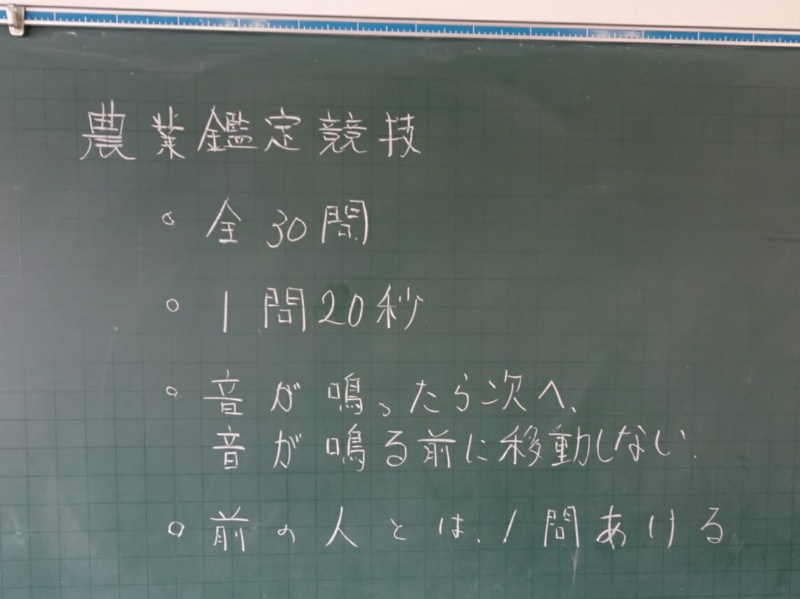 農業鑑定競技
○ 全30問
○ 1問20秒
○ 音が鳴ったら次へ、
音が鳴る前に移動しない.
○ 前の人とは、1問あける